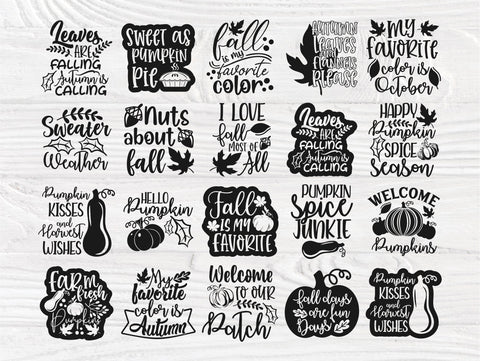 Leaves
ARE
FALLING
Autumn is
CALLING
SWEET AS
PUMPKIN
PIE
fall
is my
favorite
color
AUTUMN
leaves
AND
FLANNELS
PLEASE
MY
FAVORITE
color is
October
Sweater
Weather
Nuts
about
fall
I LOVE
fall
MOST OF
All
Leaves
ARE
FALLING
Autumn is
CALLING
HAPPY
Pumpkin
SPICE
Season
Pumpkin
KISSES
and
Harvest
WISHES
HELLO
Pumpkin
Fall
IS MY
FAVORITE
PUMPKIN
Spice
JUNKIE
WELCOME
Pumpkins
FARM
fresh
Pumpkins
My
favorite
color is
Autumn
Welcome
TO OUR
Patch
fall days
are fun
Days
Pumpkin
KISSES
and
Harvest
WISHES